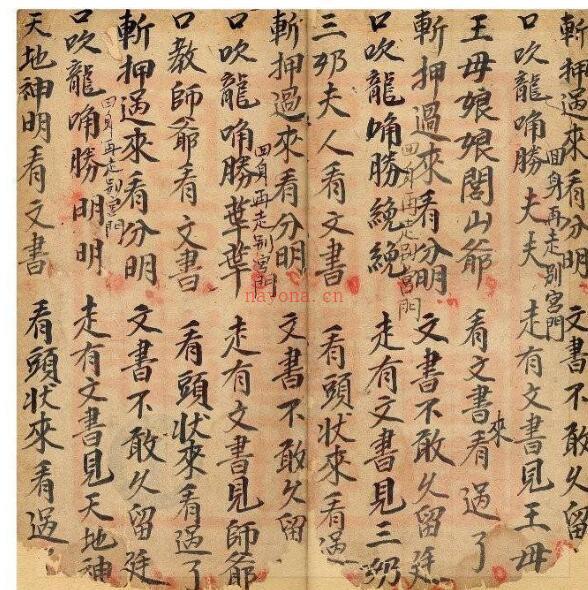 斬押過來看分明 文書不敢久留
回身再走别宮門
口吹龍唃勝夫夫 走有文書見王母
王母娘娘閭山爺 看文書來看過了
斬押過來看分明 文書不敢久留廷
回身再走别宮門
口吹龍唃勝絶絶 走有文書見三奶
三奶夫人看文書 看頭狀來看過
斬押過來看分明 文書不敢久留
回身再走别宮門
口吹龍唃勝 走有文書見師爺
口教師爺看文書 看頭狀來看過了
斬押過來看分明 文書不敢久留廷
回身再走别宮門
口吹龍唃勝明明 走有文書見天地神
天地神明看文書 看頭狀來看過
nayona.cn